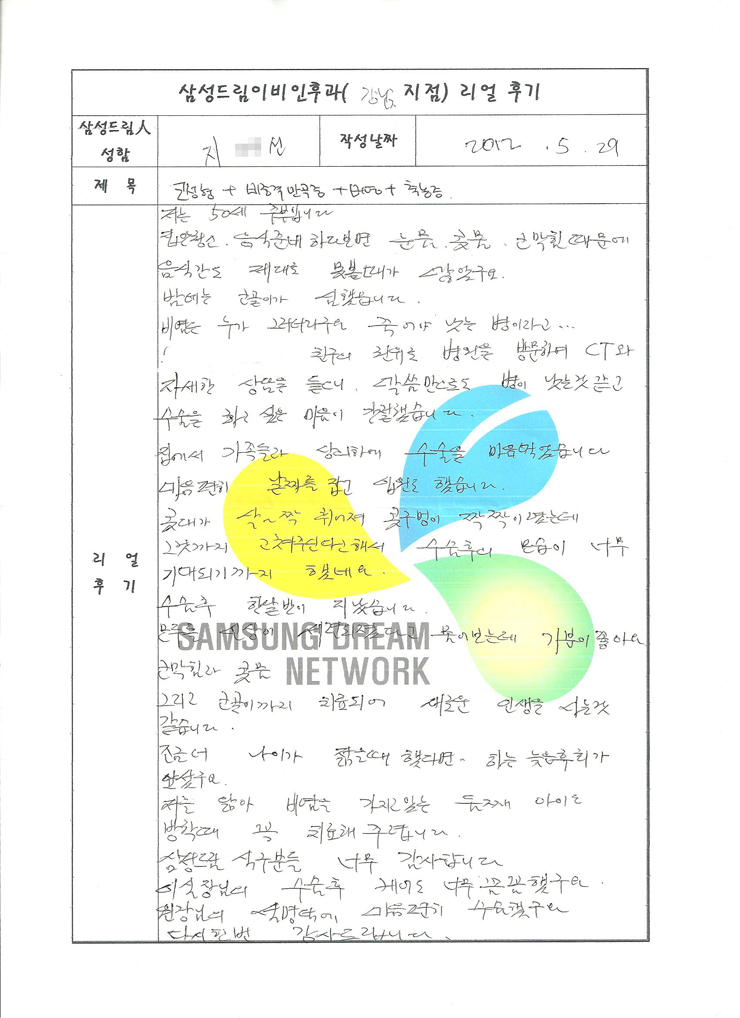 삼성드림이비인후과( 강남 지점) 리얼 후기
삼성드림人
성함
지 선
작성날짜
2012 . 5 . 29
제 목
코성형 + 비중격만곡증 + 비염 + 축농증.
리 얼
후 기
저는 50세 주부입니다
집안청소. 음식준비 하다보면 눈물, 콧물, 코막힘 때문에
음식간도 제대로 못볼때가 많았구요.
밤에는 코골이가 심했습니다.
비염은 누가 그러더라구요 죽어야 낫는 병이라고...
! 친구의 권유로 병원을 방문하여 CT와
자세한 상담을 들으니, 말씀만으로도 병이 낫는것 같고
수술을 하고 싶은 마음이 간절했습니다.
집에서 가족들과 상의하에 수술을 마음먹었습니다
마음편히 날짜를 잡고 입원도 했습니다.
콧대가 살~짝 휘어져 콧구멍이 짝짝이였는데
그것까지 고쳐주신다고해서 수술후의 모습이 너무
기대되기까지 했네요.
수술후 한달반이 지났습니다.
모두들 인상이 세련되졌다고 물어보는데 기분이 좋아요
코막힘과 콧물
그리고 코골이까지 치료되어 새로운 인생을 사는것
같습니다.
조금더 나이가 젊을때 했다면~ 하는 늦은후회가
앞섰구요.
저를 닮아 비염을 가지고있는 둘째 아이도
방학때 꼭 치료해 주렵니다.
삼성드림 식구분들 너무 감사합니다
이실장님의 수술후 케어도 너무 꼼꼼했구요.
원장님의 설명덕에 마음편히 수술했구요
다시한번 감사드립니다.
SAMSUNG DREAM
NETWORK